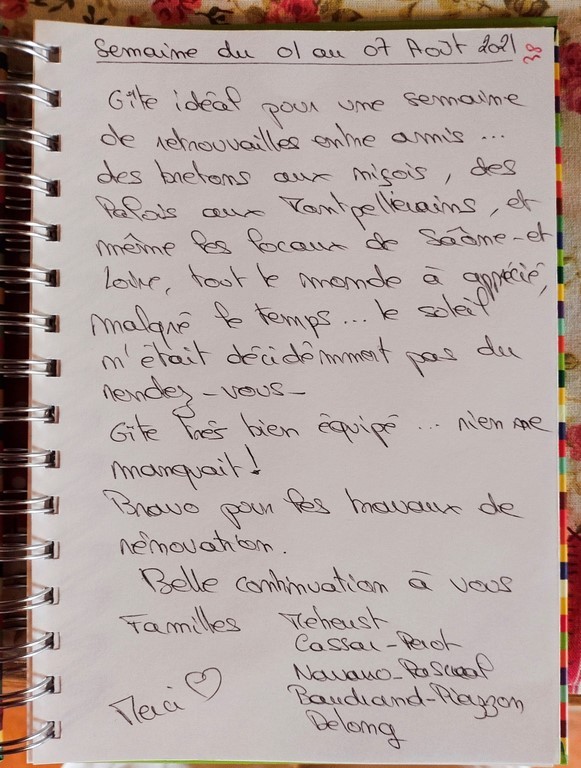 Semaine du 01 au 07 Août 2021 38
Gîte idéal pour une semaine
de retrouvailles entre amis ...
des bretons aux niçois, des
Palois aux Montpelliérains, et
même les locaux de Saône-et
Loire, tout le monde à apprécié,
malgré le temps ... le soleil
n'était décidémment pas du
rendez-vous-
Gîte très bien équipé ... rien ne
manquait !
Bravo pour les travaux de
rénovation.
Belle continuation à vous
Familles Meheust
Cassar-Perot
Navarro-Pascual
Baudrand-Piazzon
Delong
Merci ♡